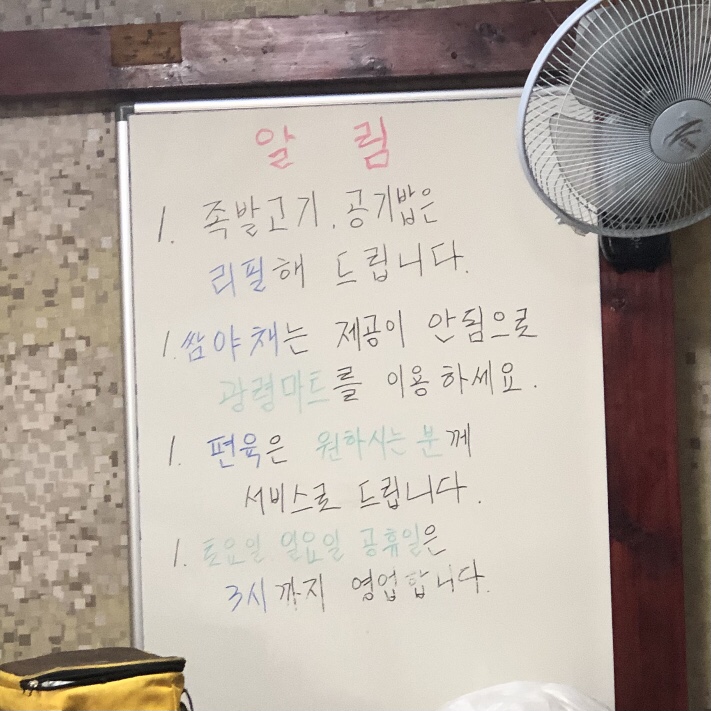 알림
1. 족발고기. 공기밥은
리필해 드립니다.
1. 쌈야채는 제공이 안됨으로
광령마트를 이용하세요.
1. 편육은 원하시는 분께
서비스로 드립니다.
1. 토요일 일요일 공휴일은
3시까지 영업합니다.